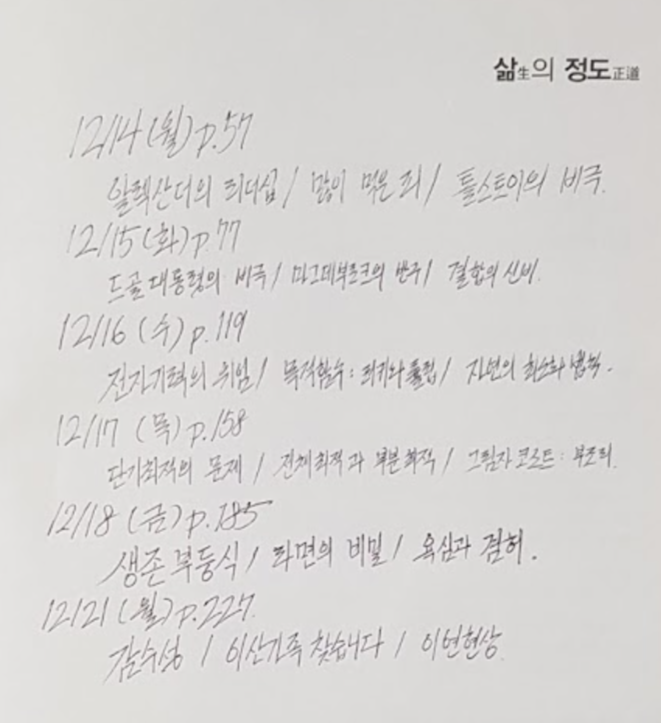 삶生의 정도正道
12/14 (월) p.57
알렉산더의 리더십 / 많이 먹은 죄 / 톨스토이의 비극.
12/15 (화) p.77
드골 대통령의 비극 / 마그데부르크의 반구 / 결합의 신비.
12/16 (수) p.119
전자기력의 위임 / 목적함수: 리키와 폴립 / 자연의 최소화 법칙.
12/17 (목) p.158
단기최적의 문제 / 전체최적과 부분최적 / 그림자 코스트:
12/18 (금) p.185
생존 부등식 / 라면의 비밀 / 욕심과 겸허.
12/21 (월) p.227.
감수성 / 이산가족 찾습니다 / 이연현상.